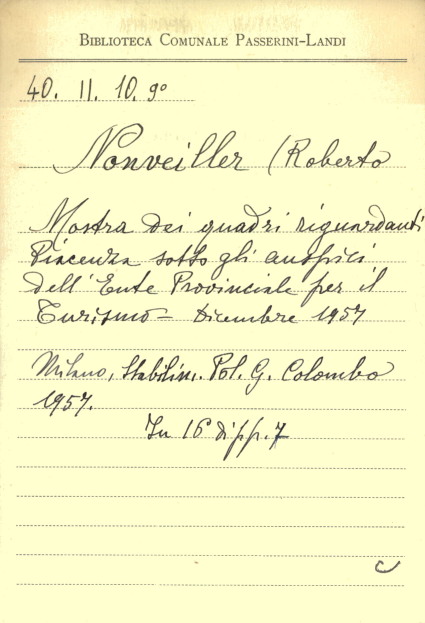 BIBLIOTECA COMUNALE PASSERINI-LANDI
40. II. 10. 9º
Nonveiller (Roberto
Mostra dei quadri riguardanti
Piacenza sotto gli auspici
dell'Ente Provinciale per il
Turismo - Dicembre 1957
Milano, Stabilim. Pol. G. Colombo
1957.
In 16 di pp. 7
C